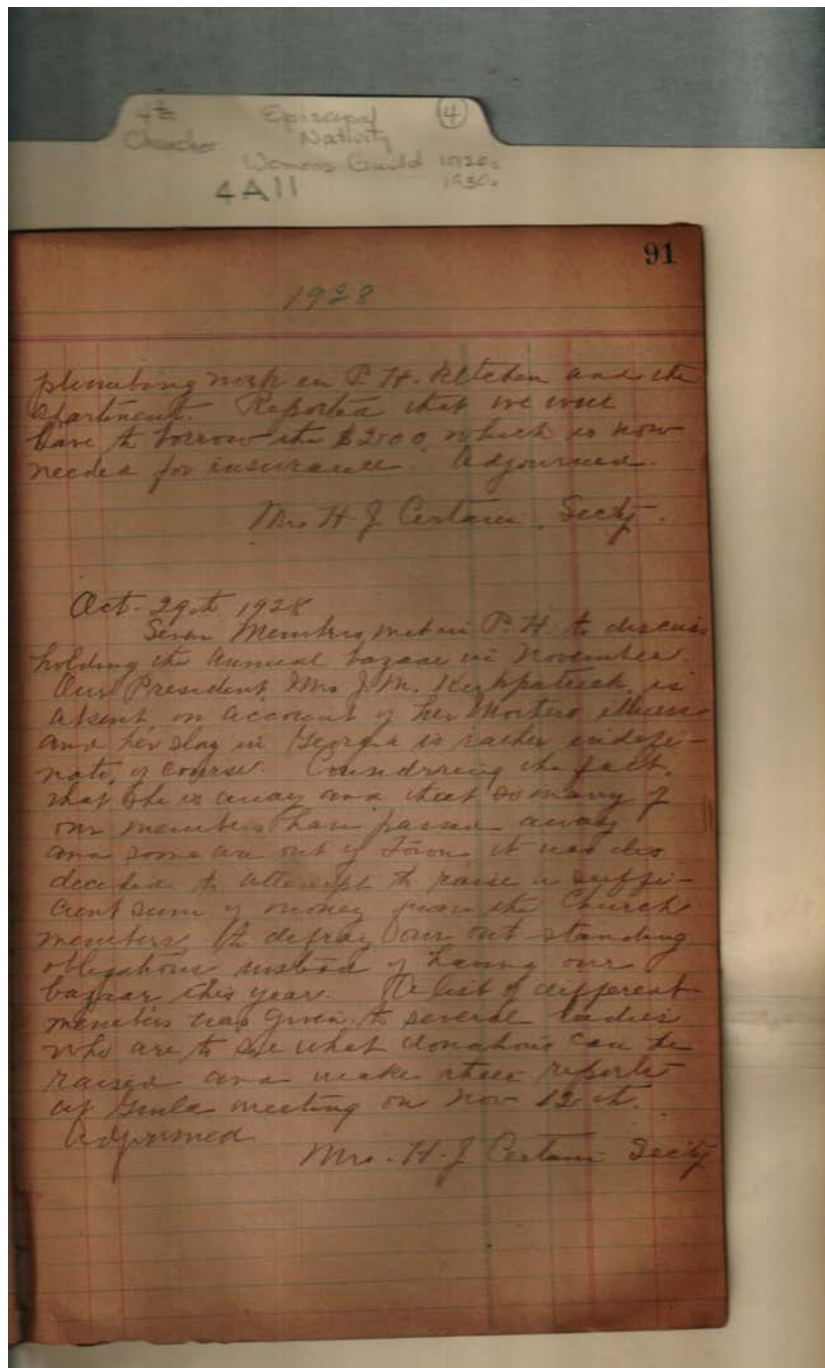 4th Episcopal 4
Churches Nativity
Womens Guild 1920s
4A11 1930s
91
1928
plumbing work in P. H. Kitchen and the
apartment. Reported that we will
have to borrow the $200 which is now
needed for insurance. Adjourned.
Mrs H. J. Certain, Secty.
Oct. 29th 1928
Seven Members met in P. H. to discuss
holding the annual bazaar in November.
Our President Mrs J. M. Kirkpatrick, is
absent on account of her Mothers illness
and her stay in Georgia is rather indefi-
nate, of course. Considering the fact,
that she is away and that so many of
our members have passed away
and some are out of Town, it was
decided to attempt to raise a suffi-
cient sum of money from the Church
members, to defray our out-standing
obligations instead of having our
bazaar this year. A list of different
members was given to several ladies
who are to see what donations can be
raised and make their reports
at Guild meeting on Nov 12th.
Adjourned
Mrs. H. J. Certain Secty